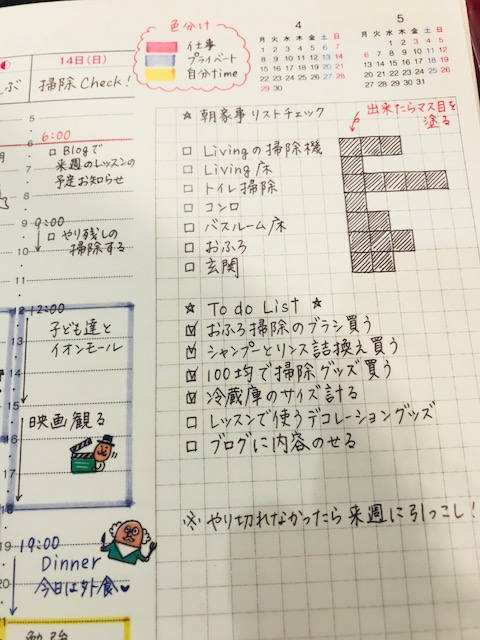 14日(日)
掃除Check!
6:00
□ Blogで
来週のレッスンの
予定お知らせ
9:00
□ やり残しの
掃除する
12:00
子ども達と
イオンモール
映画観る
19:00
Dinner
今日は外食♥
勉強
色分け
仕事
プライベート
自分time
4
月 火 水 木 金 土 日
1 2 3 4 5 6 7
8 9 10 11 12 13 14
15 16 17 18 19 20 21
22 23 24 25 26 27 28
29 30
5
月 火 水 木 金 土 日
1 2 3 4 5
6 7 8 9 10 11 12
13 14 15 16 17 18 19
20 21 22 23 24 25 26
27 28 29 30 31
☆ 朝家事リストチェック
出来たらマス目を
塗る
□ Livingの掃除機
□ Living床
□ トイレ掃除
□ コンロ
□ バスルーム床
□ おふろ
□ 玄関
☆ To do List ☆
☑ おふろ掃除のブラシ買う
☑ シャンプーとリンス詰換え買う
☑ 100均で掃除グッズ買う
☑ 冷蔵庫のサイズ計る
□ レッスンで使うデコレーショングッズ
□ ブログに内容のせる
※ やり切れなかったら来週に引っこし!